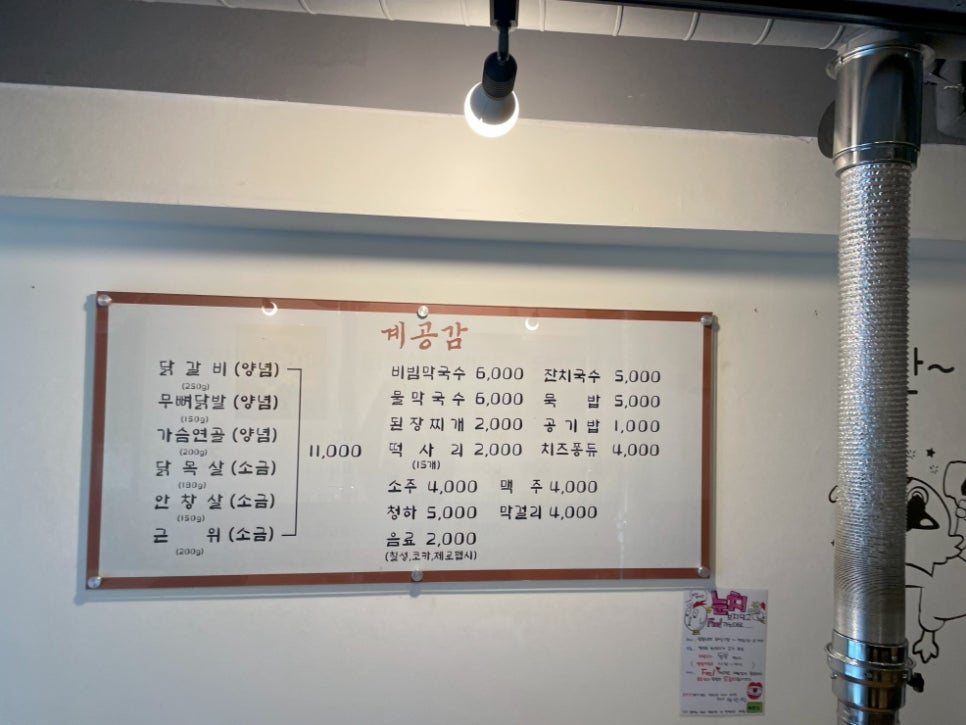 계공감
닭 갈 비 (양념)
(250g)
무뼈닭발 (양념)
(150g)
가슴연골 (양념)
(200g)
닭 목 살 (소금)
(180g)
안 창 살 (소금)
(150g)
근 위 (소금)
(200g)
11,000
비빔막국수 6,000 잔치국수 5,000
물막국수 6,000 묵 밥 5,000
된장찌개 2,000 공기밥 1,000
떡 사 리 2,000 치즈퐁듀 4,000
(15개)
소주 4,000 맥 주 4,000
청하 5,000 막걸리 4,000
음료 2,000
(칠성,코카,제로펩시)
눈치
Feel
Feel